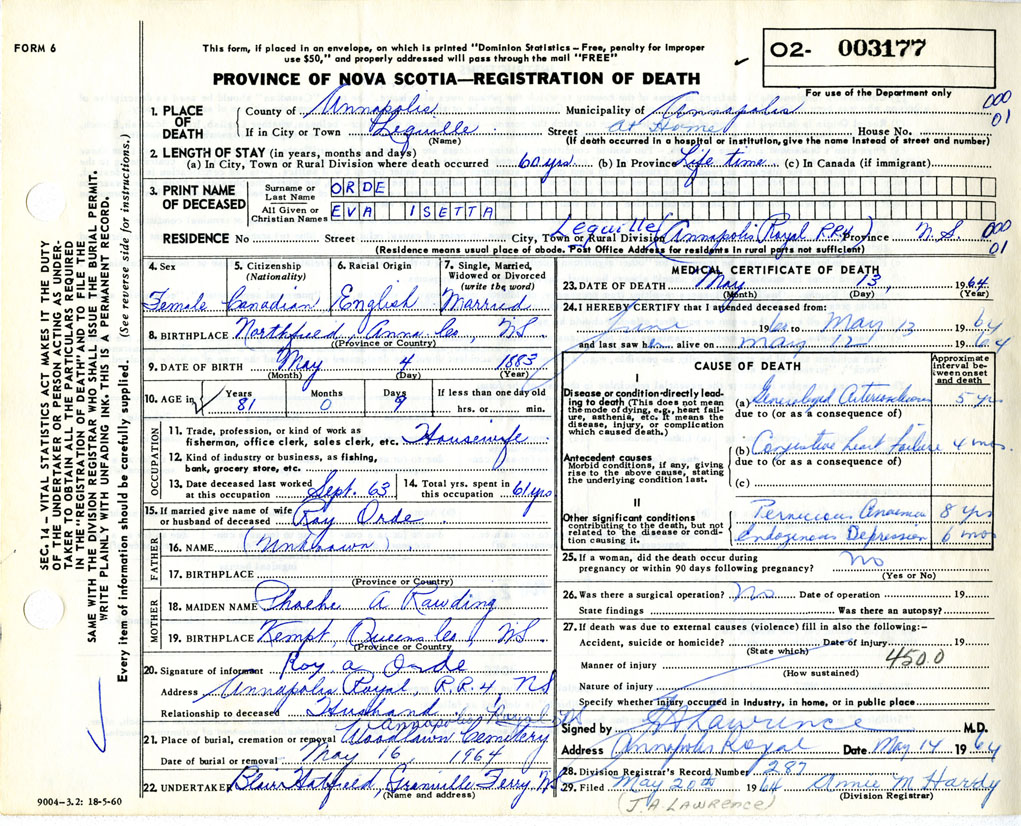 FORM 6
This form, if placed in an envelope, on which is printed "Dominion Statistics – Free, penalty for improper
use $50," and properly addressed will pass through the mail "FREE"
PROVINCE OF NOVA SCOTIA—REGISTRATION OF DEATH
O2- 003177
For use of the Department only
1. PLACE OF DEATH
County of Annapolis Municipality of Annapolis
000
01
If in City or Town Lequille Street At Home House No.
(Name) (If death occurred in a hospital or institution, give the name instead of street and number)
2. LENGTH OF STAY (in years, months and days)
(a) In City, Town or Rural Division where death occurred 60 yrs (b) In Province Life time (c) In Canada (if immigrant)
3. PRINT NAME OF DECEASED
Surname or Last Name ORDE
All Given or Christian Names EVA ISETTA
RESIDENCE No Street City, Town or Rural Division Lequille (Annapolis Royal RR4) Province N.S
000
01
(Residence means usual place of abode. Post Office Address for residents in rural parts not sufficient)
4. Sex Female
5. Citizenship (Nationality) Canadian
6. Racial Origin English
7. Single, Married, Widowed or Divorced (write the word) Married
8. BIRTHPLACE Northfield, Anna Co, NS
(Province or Country)
9. DATE OF BIRTH May 4 1883
(Month) (Day) (Year)
10. AGE in Years Months Days If less than one day old
81 0 9 hrs. or min.
OCCUPATION
11. Trade, profession, or kind of work as
fisherman, office clerk, sales clerk, etc. Housewife
12. Kind of industry or business, as fishing,
bank, grocery store, etc.
13. Date deceased last worked at this occupation Sept. 63
14. Total yrs. spent in this occupation 61 yrs
15. If married give name of wife
or husband of deceased Roy Orde
FATHER
16. NAME (Unknown)
17. BIRTHPLACE
(Province or Country)
MOTHER
18. MAIDEN NAME Phoebe A Rawding
19. BIRTHPLACE Kempt, Queens Co, NS
(Province or Country)
20. Signature of informant Roy A Orde
Address Annapolis Royal R.R.4, NS
Relationship to deceased Husband
Annapolis Royal NS
21. Place of burial, cremation or removal Woodlawn Cemetery
Date of burial or removal May 16, 1964
22. UNDERTAKER Blair Hatfield, Granville Ferry NS
(Name and address)
MEDICAL CERTIFICATE OF DEATH
23. DATE OF DEATH May 13, 1964
(Month) (Day) (Year)
24. I HEREBY CERTIFY that I attended deceased from:
June 1960 to May 13 1964
and last saw her alive on May 12 1964
CAUSE OF DEATH
Approximate interval between onset and death
I
Disease or condition directly leading to death (This does not mean the mode of dying, e.g., heart failure, asthenia, etc. It means the disease, injury, or complication which caused death.)
(a) Generalized Arteriosclerosis 5 yrs
due to (or as a consequence of)
(b) Congestive heart failure 4 mos.
due to (or as a consequence of)
Antecedent causes
Morbid conditions, if any, giving rise to the above cause, stating the underlying condition last.
(c)
II
Other significant conditions
contributing to the death, but not related to the disease or condition causing it.
Pernicious Anaemia 8 yrs
Endogenous Depression 6 mos
25. If a woman, did the death occur during
pregnancy or within 90 days following pregnancy? No
(Yes or No)
26. Was there a surgical operation? No Date of operation 19
State findings Was there an autopsy?
27. If death was due to external causes (violence) fill in also the following:–
Accident, suicide or homicide? Date of injury 19
(State which)
Manner of injury 4500
(How sustained)
Nature of injury
Specify whether injury occurred in industry, in home, or in public place
Signed by J A Lawrence M.D.
Address Annapolis Royal Date May 14 1964
28. Division Registrar's Record Number 287
29. Filed May 20th 1964 Annie M. Hardy
(J.A. LAWRENCE) (Division Registrar)
SEC. 14 – VITAL STATISTICS ACT MAKES IT THE DUTY
OF THE UNDERTAKER OR PERSON ACTING AS UNDER-
TAKER TO OBTAIN ALL THE PARTICULARS REQUIRED
IN THE "REGISTRATION OF DEATH" AND TO FILE THE
SAME WITH THE DIVISION REGISTRAR WHO SHALL ISSUE THE BURIAL PERMIT.
WRITE PLAINLY WITH UNFADING INK. THIS IS A PERMANENT RECORD.
Every item of information should be carefully supplied. (See reverse side for instructions.)
9004-3.2: 18-5-60